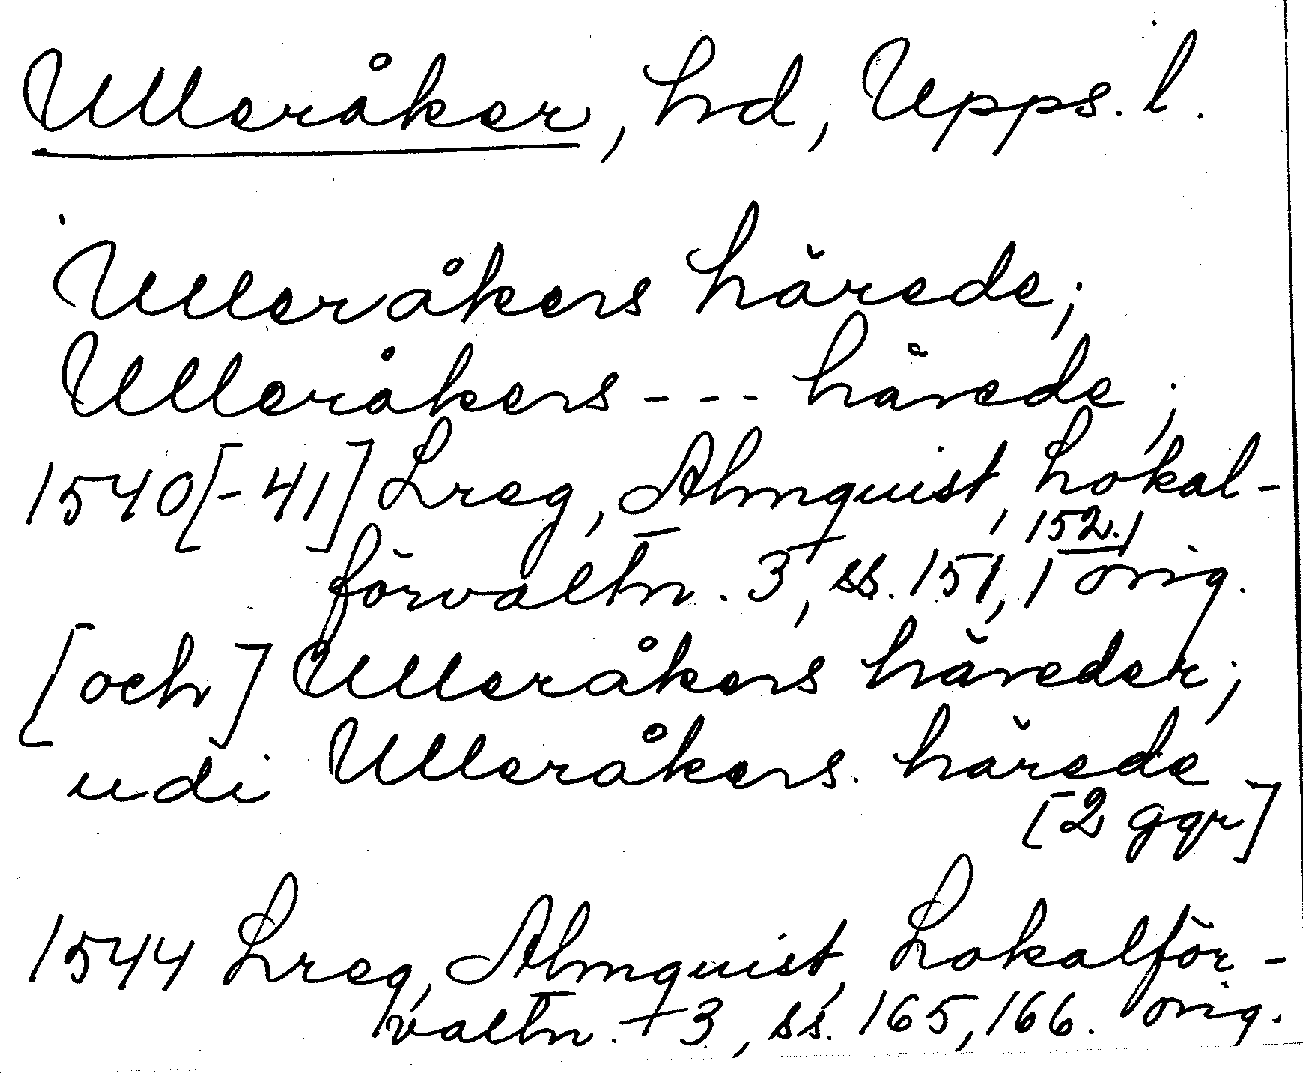 Ulleråker, hd, Upps. l.
Ulleråkers härede;
Ulleråkers --- hårede;
1540[-41] Lreg, Almquist, Lokal-
förvaltn. † 3, ss. 151, 152. orig.
[och] Ulleråkers häreder;
udi Ulleråkers härede
[2 ggr]
1544 Lreg, Almquist, Lokalför-
valtn. † 3, ss. 165, 166. orig.